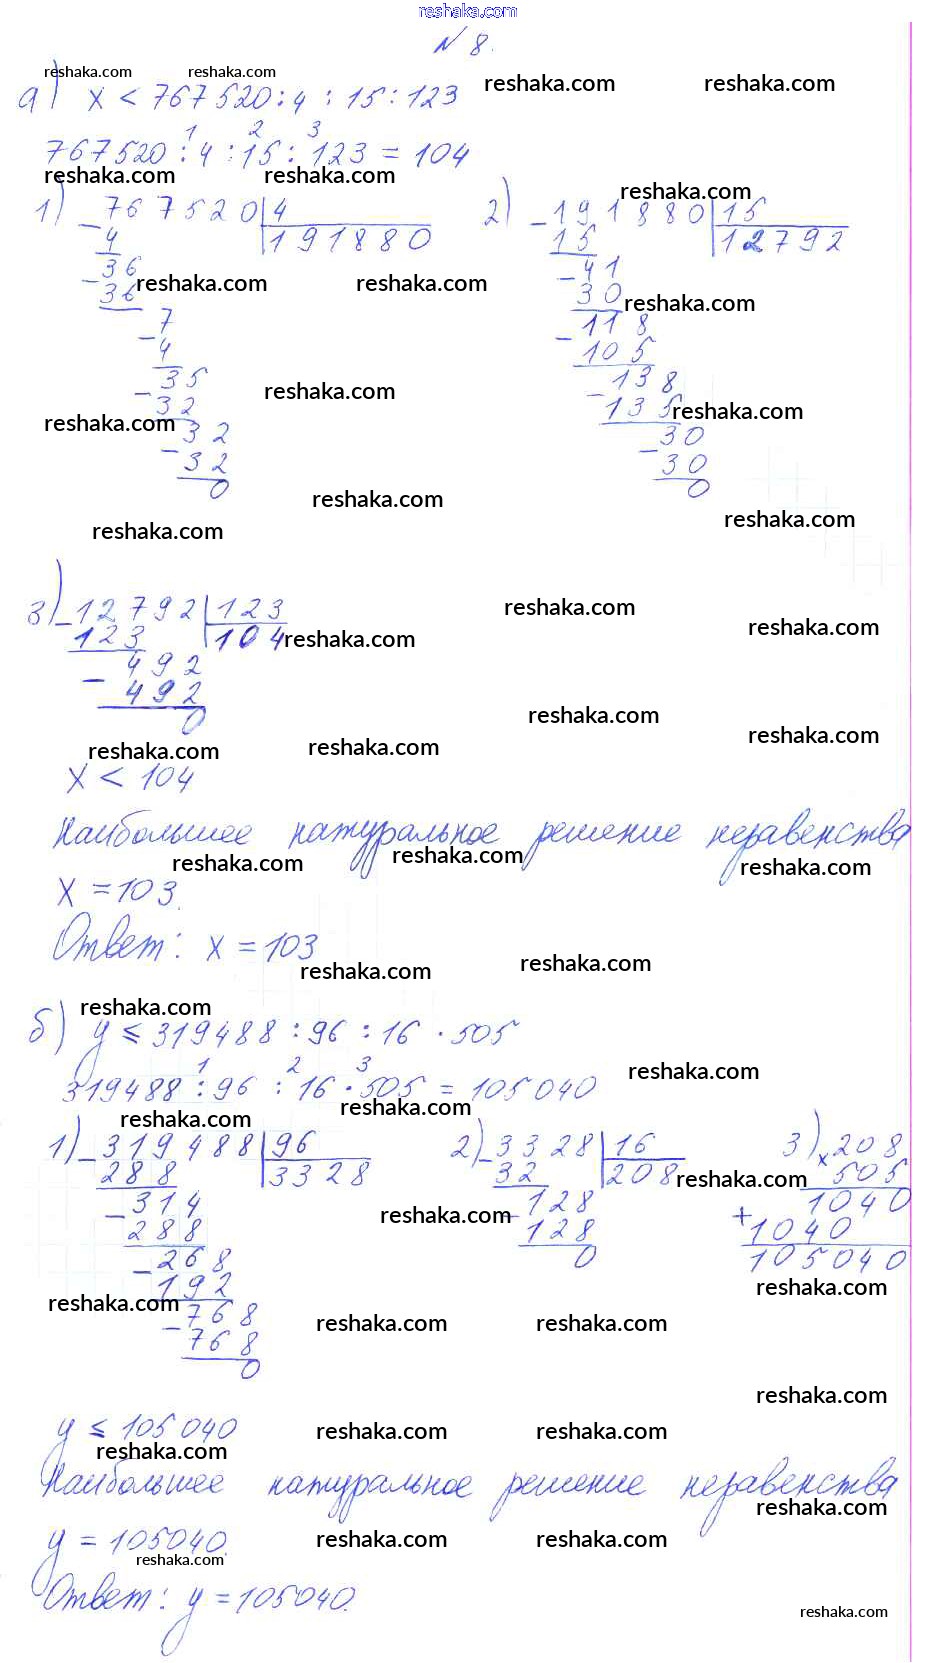 reshaka.com
№ 8.
reshaka.com reshaka.com
reshaka.com reshaka.com
а) x < 767 520 : 4 : 15 : 123
1 2 3
767 520 : 4 : 15 : 123 = 104
reshaka.com reshaka.com
reshaka.com
1) 767520 | 4
- 4 | 191880
36
- 36
reshaka.com reshaka.com
7
- 4
35
- 32
reshaka.com
reshaka.com
32
- 32
0
reshaka.com
reshaka.com
2) - 191880 | 15
15 | 12792
- 41
30
reshaka.com
- 118
105
- 138
135
reshaka.com
- 30
30
0
reshaka.com
3) - 12792 | 123
123 | 104
reshaka.com
reshaka.com
reshaka.com
- 492
492
0
reshaka.com
reshaka.com
reshaka.com reshaka.com
x < 104
Наибольшее натуральное решение неравенства
reshaka.com reshaka.com reshaka.com
x = 103.
Ответ: x = 103
reshaka.com reshaka.com
reshaka.com
б) y ≤ 319488 : 96 : 16 · 505
1 2 3
319488 : 96 : 16 · 505 = 105 040
reshaka.com
reshaka.com reshaka.com
1) - 319488 | 96
288 | 3328
- 314
288
- 268
192
reshaka.com
- 768
768
0
2) - 3328 | 16
32 | 208
reshaka.com
reshaka.com
- 128
128
0
3) × 208
505
1040
+ 1040
105040
reshaka.com
reshaka.com reshaka.com
reshaka.com
y ≤ 105 040
reshaka.com reshaka.com
reshaka.com
Наибольшее натуральное решение неравенства
reshaka.com
y = 105040.
reshaka.com reshaka.com
reshaka.com
Ответ: y = 105040.
reshaka.com